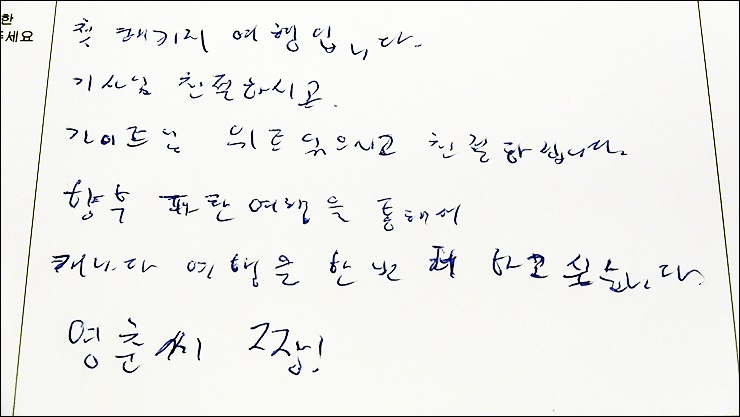 한
주세요
첫 패키지 여행입니다.
기사님 친절하시고.
가이드님 위트있으시고 친절하십니다.
향후 파란여행을 통해서
캐나다 여행을 한번 더 하고 싶습니다.
영춘씨 짱!